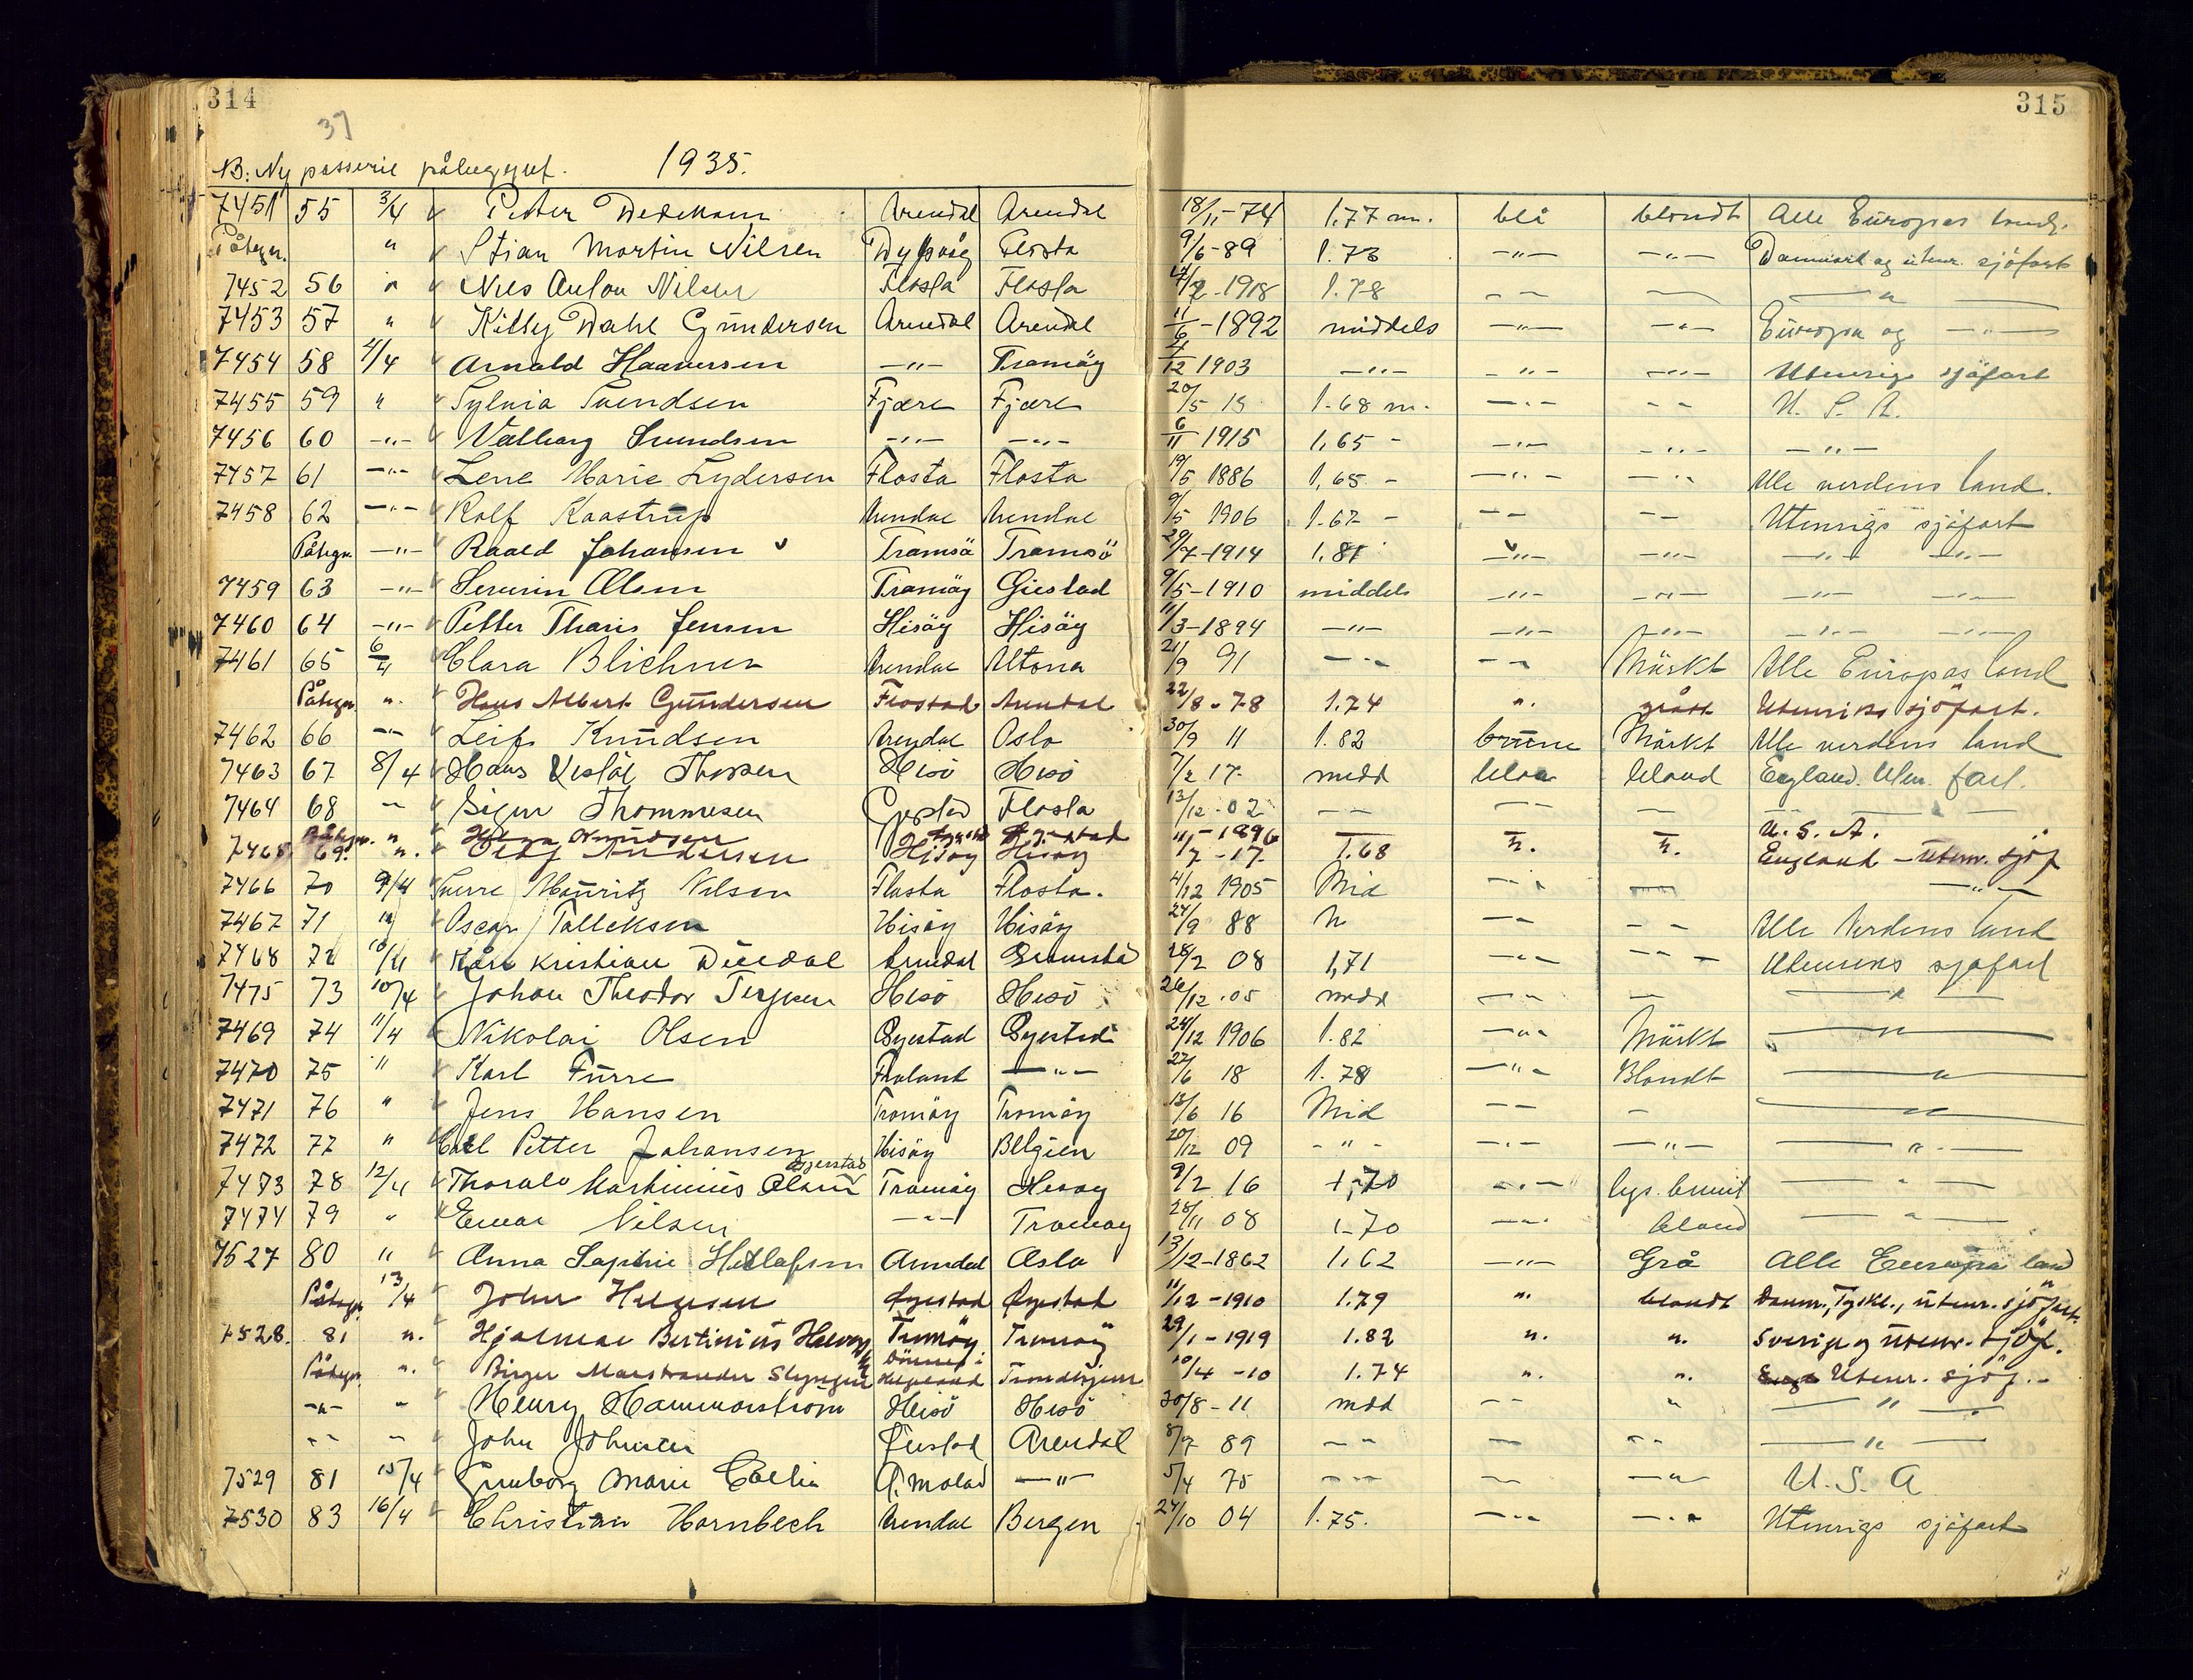 314
315
37
1935.
7451 55 3/4 Petter Dedekam Arendal Arendal 18/11-74 1.77 m. blå blondt Alle Europas land.
Påtegn. " Stian Martin Nilsen Dypvåg Flosta 9/6-89 1.73 -"- -"- Danmark og utenr. sjöfart
7452 56 " Nils Anton Nilsen Flosta Flosta /2-1918 1.78 - - — — " —
7453 57 " Kitty Dahl Gundersen Arendal Arendal 11/6-1892 middels -"- -"- Europa og -"-
7454 58 4/4 Arnold Haaversen -"- Tromöy /12 1903 -"- -"- -"- Utenrigs sjöfart
7455 59 " Sylvia Svendsen Fjære Fjære 20/5 15 1.68 m. -"- - - U. S. A.
7456 60 -"- Valborg Svendsen -"- -"- 6/11 1915 1,65 - -"- -"- -"-
7457 61 -"- Lene Marie Lydersen Flosta Flosta 19/5 1886 1,65 - -"- -"- Alle verdens land.
7458 62 -"- Rolf Kaastrup Arendal Arendal 9/5 1906 1.67 - - - - - Utenrigs sjöfart
Påtegn -"- Roald Johansen Tromsö Tromsö 29/7-1914 1.81 -"- -"- -"- -"-
7459 63 -"- Severin Olsen Tromöy Giestad 9/5-1910 middels -"- -"- -"- -"-
7460 64 -"- Petter Tharis Jensen Hisöy Hisöy 11/3-1894 -"- -"- -"- -"- -"-
7461 65 6/4 Clara Blichner Arendal Altona 21/9 91 -"- - - Mörkt Alle Europas land
Påtegn. ". Hans Albert Gundersen Flostad Arendal 22/8-78 1.74 ". grått Utenriks sjöfart.
7462 66 -"- Leif Knudsen Arendal Oslo 30/9 11 1.82 brune Mörkt Alle verdens land
7463 67 8/4 Hans Thorsen Hisö Hisö 7/2 17. midd blaa blond England. Uten. fart.
7464 68 - Sigur Thommesen Flosta 13/12-02 - - - - -
Påtegn. " -1896 U. S. A.
7465 69. ". Andersen Hisöy Hisöy 1/7-17 1.68 ". ". England - Utenr. sjöf
7466 70 9/4 Sverre Mauritz Nilsen Flosta Flosta. 4/12 1905 Mid -"- — -"-
7467 71 " Oscar Talleksen Hisöy Hisöy 24/9 88 " - - - - Alle Verdens land
7468 72 10/4 Kåre Kristian Arendal Grimstad 28/2 08 1,71 - - - - - Utenriks sjøfart
7475 73 10/4 Johan Theodor Terjesen Hisö Hisö 26/12-05 midd - - - — " —
7469 74 11/4 Nikolai Olsen Öyestad Öyestad 24/12 1906 1.82 -"- Mörkt — " —
7470 75 " Karl Furre Froland -"- 27/6 18 1.78 -"- Blondt — " —
7471 76 " Jens Hansen Tromöy Tromöy 13/6 16 Mid - - - — " —
7472 77 " Carl Petter Johansen Hisöy Belgien 20/12 09 -"- -"- -"- — " —
7473 78 12/4 Thorolv Martinius Olsen Tromöy Hisoy 9/2 16 1,70 -"- lys. brunt — " —
7474 79 " Einar Nilsen -"- Tromoy 28/11 08 1.70 -"- blond — " —
7527 80 " Anna Sophie Arendal Oslo 13/12-1862 1,62 -"- Grå Alle Europa land
Påtegn. 13/4 John Helgesen Øyestad Øyestad 11/12-1910 1.79 ". blondt Danm., Tyskl., utenr. sjöfart.
7528. 81 ". Hjalmar Bertinius Tromöy Tromöy 29/1-1919 1.82 ". ". Sverige og Utenr. sjöf.
Påtegn. ". Birger Marstrander Dönnes i Helgeland Trondhjem 10/4-10 1.74 ". ". Utenr. sjöf.-
-"- - Henry Hammarström Hisö Hisö 30/8-11 midd - - " — " —
-"- - John Johnsen Arendal 8/7 89 - - - - - — " —
7529 81 15/4 Gunborg Marie -"- 5/4 75 - - - -"- U.S. A
7530 83 16/4 Christian Hornbech Arendal Bergen 24/10 04 1.75. -"- -"- Utenrigs sjöfart